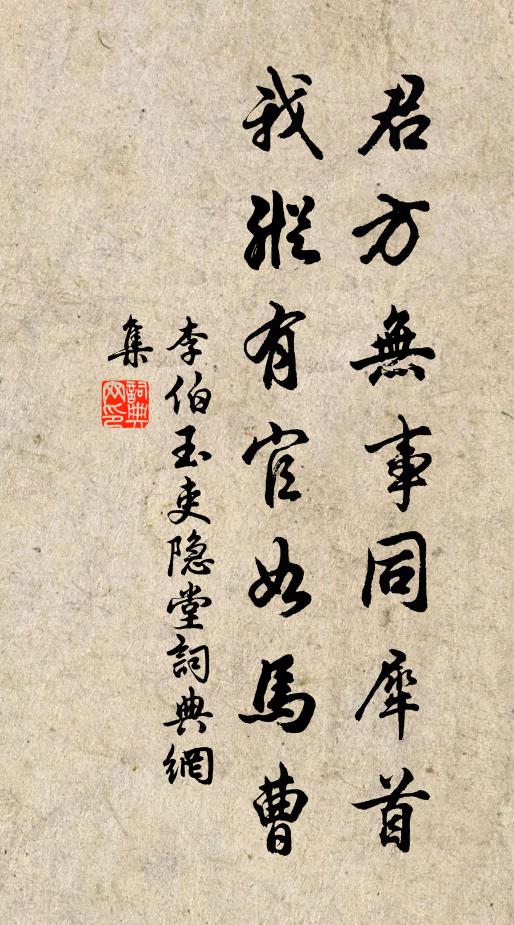 君方無事同犀首
我縱有官如馬曹
李伯玉吏隐堂詞典網
集
詞典
网印